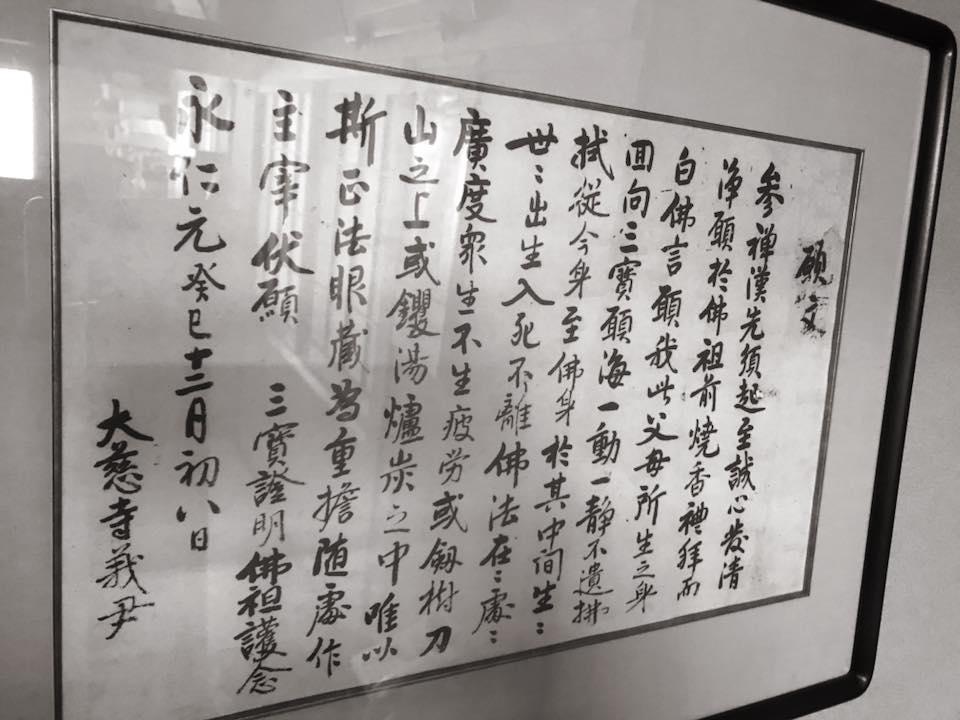 願文
参禅漢先須起至誠心發清
浄願於佛祖前燒香禮拜而
白佛言願我此父母所生之身
回向三寶願海一動一静不遺拂
拭從今身至佛身於其中间生〻
世〻出生入死不離佛法在〻處〻
廣度衆生不生疲労或釼樹刀
山之上或鑊湯爐炭之中唯以
斯正法眼蔵為重擔随處作
主宰伏願 三寶證明佛祖護念
永仁元癸巳十二月初八日
大慈寺義尹